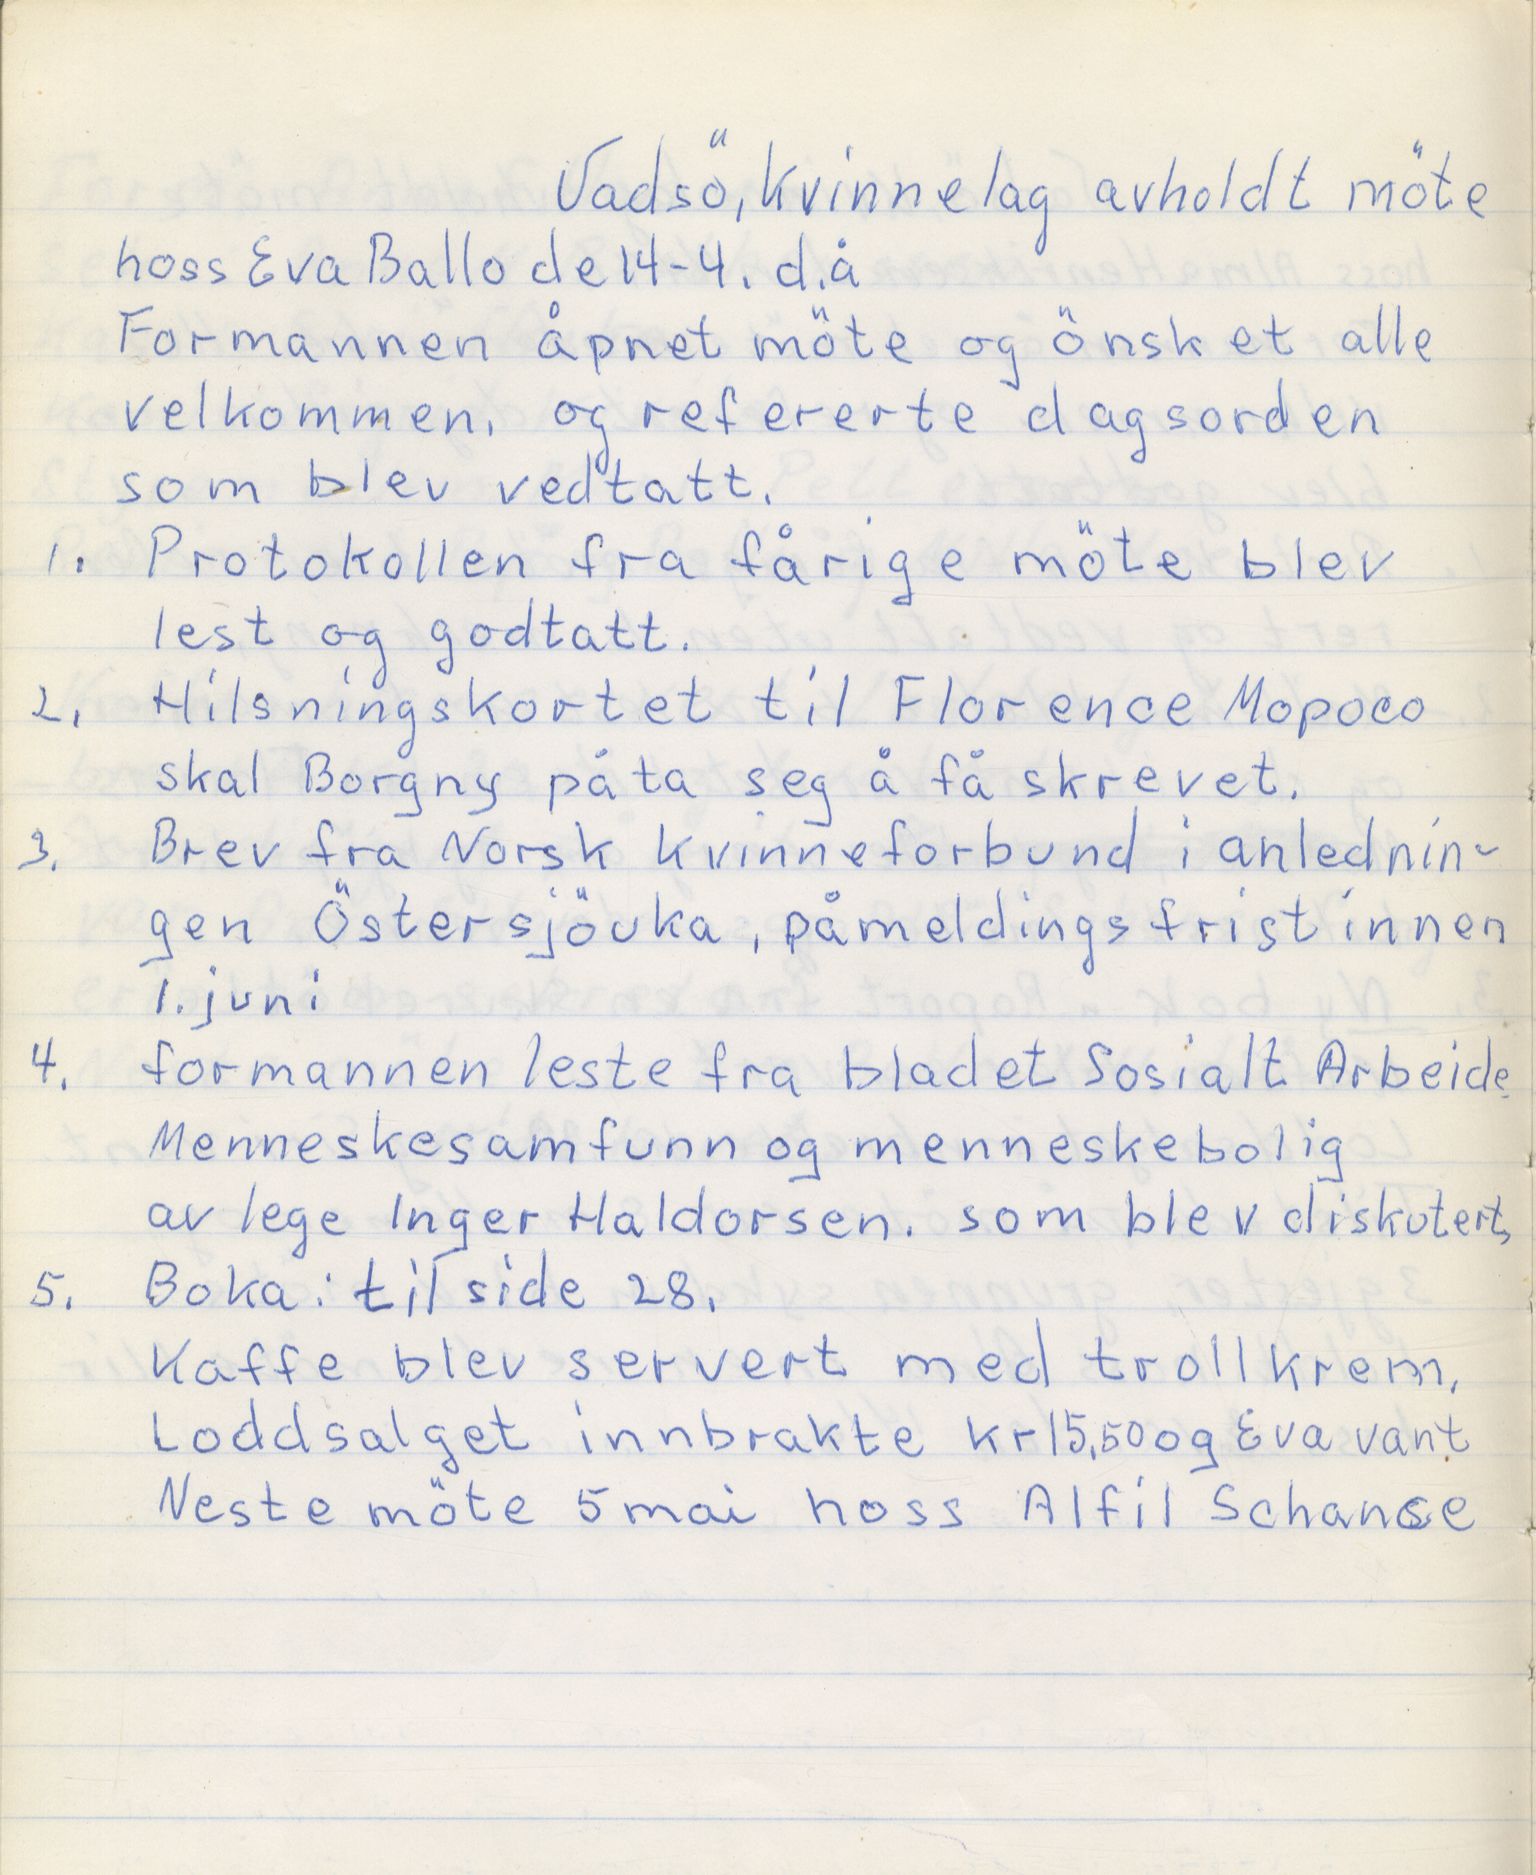 Vadsö, kvinnelag avholdt möte
hoss Eva Ballo de 14-4. d.å
Formannen åpnet möte og önsket alle
velkommen, og refererte dagsorden
som blev vedtatt.
1. Protokollen fra fårige möte blev
lest og godtatt.
2. Hilsningskortet til Florence Mopoco
skal Borgny påta seg å få skrevet.
3. Brev fra Norsk kvinneforbund i anlednin-
gen Östersjöuka, påmeldingsfrist innen
1. juni
4. formannen leste fra bladet Sosialt Arbeide
Menneskesamfunn og menneskebolig
av lege Inger Haldorsen. som blev diskutert,
5. Boka: til side 28.
Kaffe blev servert med trollkrem,
Loddsalget innbrakte kr 15,50 og Eva vant
Neste möte 5 mai hoss Alfil Schanse